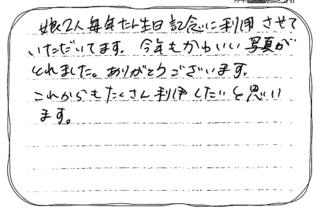 娘2人毎年たん生日記念に利用させて
いただいてます。今年もかわいい写真が
とれました。ありがとうございます。
これからもたくさん利用したいと思い
ます。